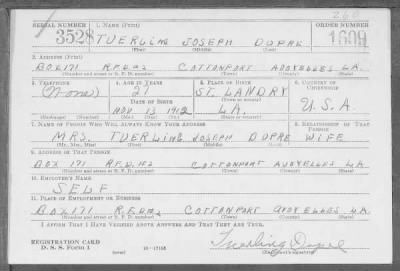 260
SERIAL NUMBER 1. NAME (Print) ORDER NUMBER
3528 TUERLING JOSEPH DUPRE 1609
(First) (Middle) (Last)
2. ADDRESS (Print)
BOX 171 R.F.D. #2 COTTONPORT AVOYELLES LA.
(Number and street or R. F. D. number) (Town) (County) (State)
3. TELEPHONE 4. AGE IN YEARS 5. PLACE OF BIRTH 6. COUNTRY OF CITIZENSHIP
(None) 27 ST. LANDRY
DATE OF BIRTH (Town or county)
NOV 13 1912 LA. U.S.A
(Exchange) (Number) (Mo.) (Day) (Yr.) (State or country)
7. NAME OF PERSON WHO WILL ALWAYS KNOW YOUR ADDRESS 8. RELATIONSHIP OF THAT PERSON
MRS. TUERLING JOSEPH DUPRE WIFE
(Mr., Mrs., Miss) (First) (Middle) (Last)
9. ADDRESS OF THAT PERSON
BOX 171 R.F.D. #2 COTTONPORT AVOYELLES LA
(Number and street or R. F. D. number) (Town) (County) (State)
10. EMPLOYER'S NAME
SELF
11. PLACE OF EMPLOYMENT OR BUSINESS
BOX 171 R.F.D. #2 COTTONPORT AVOYELLES LA
(Number and street or R. F. D. number) (Town) (County) (State)
I AFFIRM THAT I HAVE VERIFIED ABOVE ANSWERS AND THAT THEY ARE TRUE.
REGISTRATION CARD
D. S. S. Form 1 (over) 16-17105 Tuerling Dupre